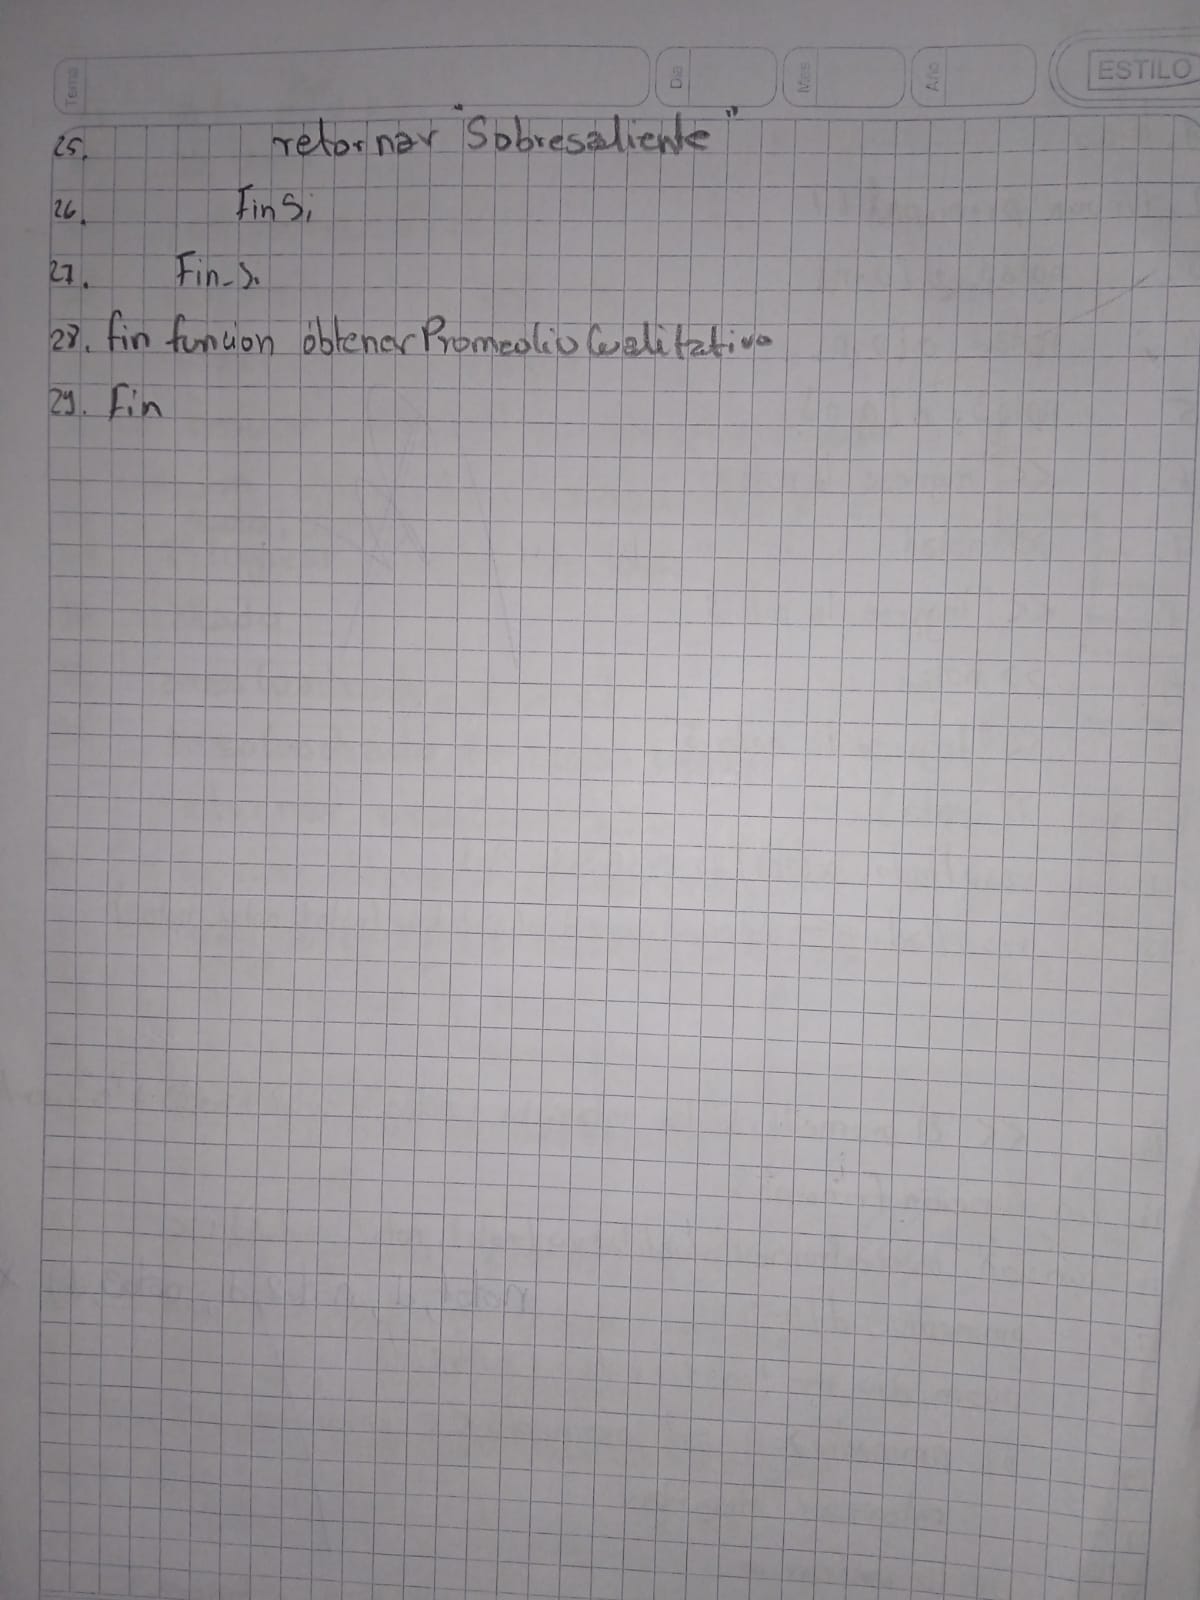 Tema Dia Mes Año ESTILO
25. retornar "Sobresaliente"
26. Fin Si
27. Fin-Si
28. fin funcion obtenerPromedioCualitativo
29. Fin